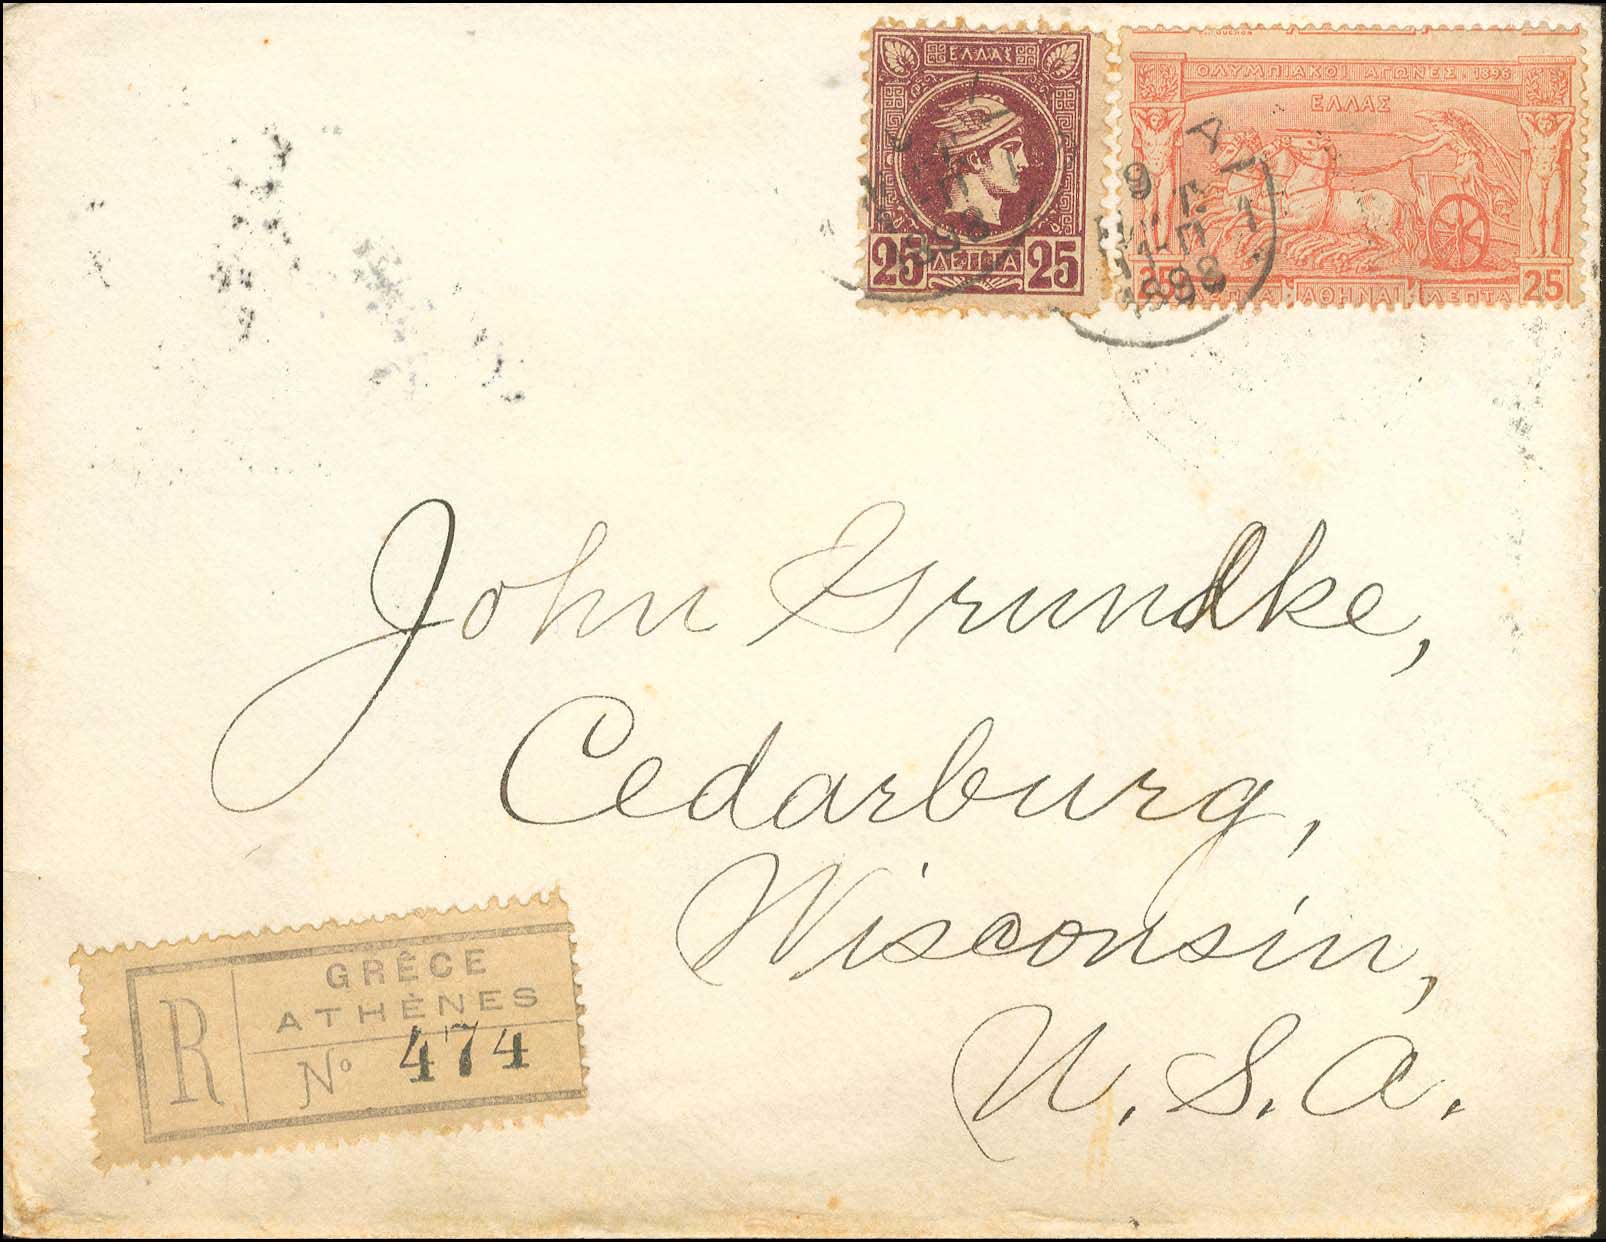 ΕΛΛΑΣ
25 ΛΕΠΤΑ 25
ΟΛΥΜΠΙΑΚΟΙ ΑΓΩΝΕΣ · 1896
ΕΛΛΑΣ
25 ΛΕΠΤΑ ΑΘΗΝΑΙ ΛΕΠΤΑ 25
1898
9
1898
John Grundke,
Cedarburg,
Wisconsin,
U.S.A.
R
GRÈCE
ATHÈNES
No 474